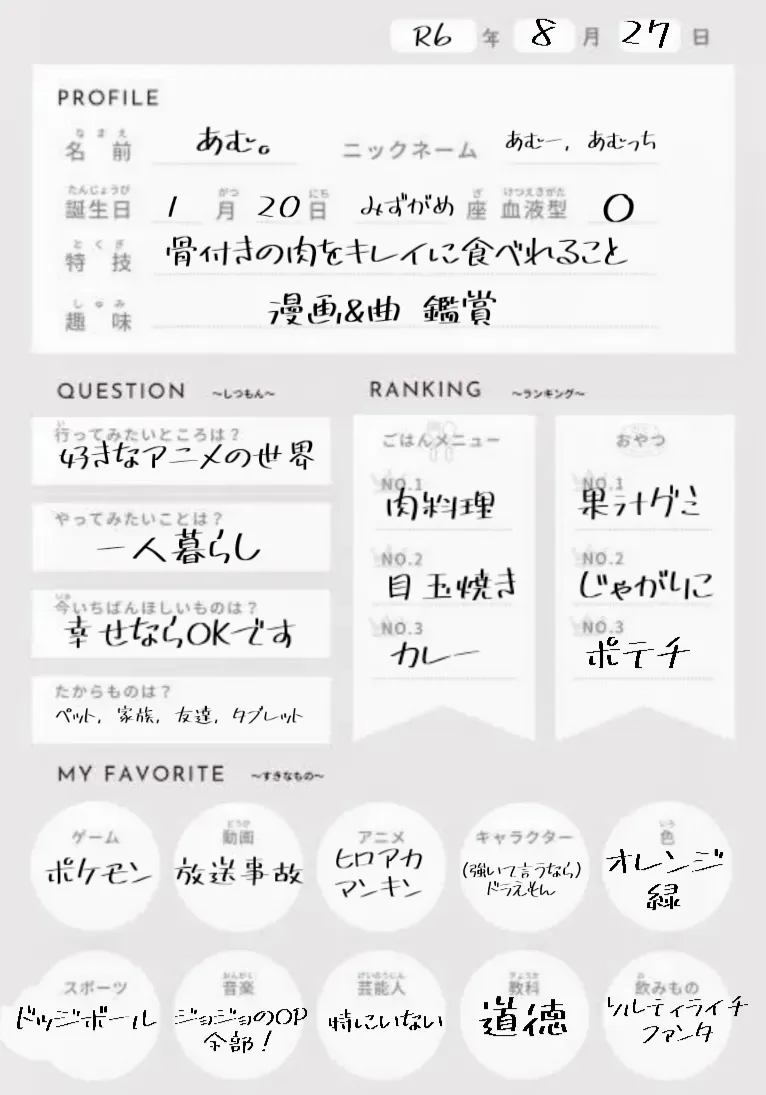 R6 年 8 月 27 日
PROFILE
なまえ
名前 あむ。 ニックネーム あむー, あむっち
たんじょうび がつ にち ざ けつえきがた
誕生日 1 月 20 日 みずがめ 座 血液型 O
とくぎ
特技 骨付きの肉をキレイに食べれること
しゅみ
趣味 漫画&曲 鑑賞
QUESTION ~しつもん~
い
行ってみたいところは?
好きなアニメの世界
やってみたいことは?
一人暮らし
いま
今いちばんほしいものは?
幸せならOKです
たからものは?
ペット, 家族, 友達, タブレット
RANKING ~ランキング~
ごはんメニュー
NO.1
肉料理
NO.2
目玉焼き
NO.3
カレー
おやつ
NO.1
果汁グミ
NO.2
じゃがりこ
NO.3
ポテチ
MY FAVORITE ~すきなもの~
ゲーム
ポケモン
どうが
動画
放送事故
アニメ
ヒロアカ
マンキン
キャラクター
(強いて言うなら)
ドラえもん
いろ
色
オレンジ
緑
スポーツ
ドッジボール
おんがく
音楽
ジョジョのOP
全部!
げいのうじん
芸能人
特にいない
きょうか
教科
道徳
の
飲みもの
ソルティライチ
ファンタ